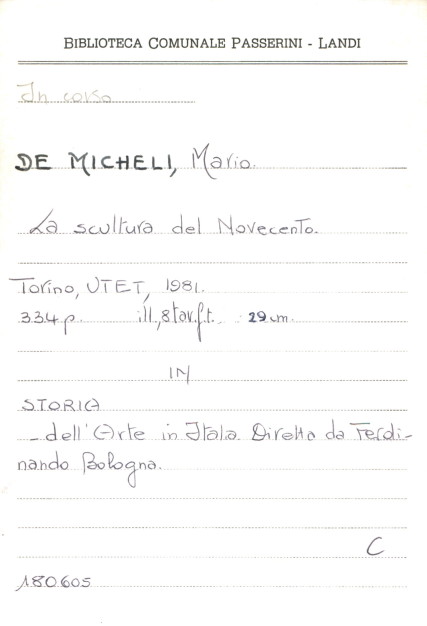 BIBLIOTECA COMUNALE PASSERINI - LANDI
In corso
DE MICHELI, Mario.
La scultura del Novecento.
Torino, UTET, 1981.
334 p. ill., 8 tav.f.t. 29 cm.
IN
STORIA
- dell'Arte in Itala. Diretta da Ferdi-
nando Bologna.
C
180605